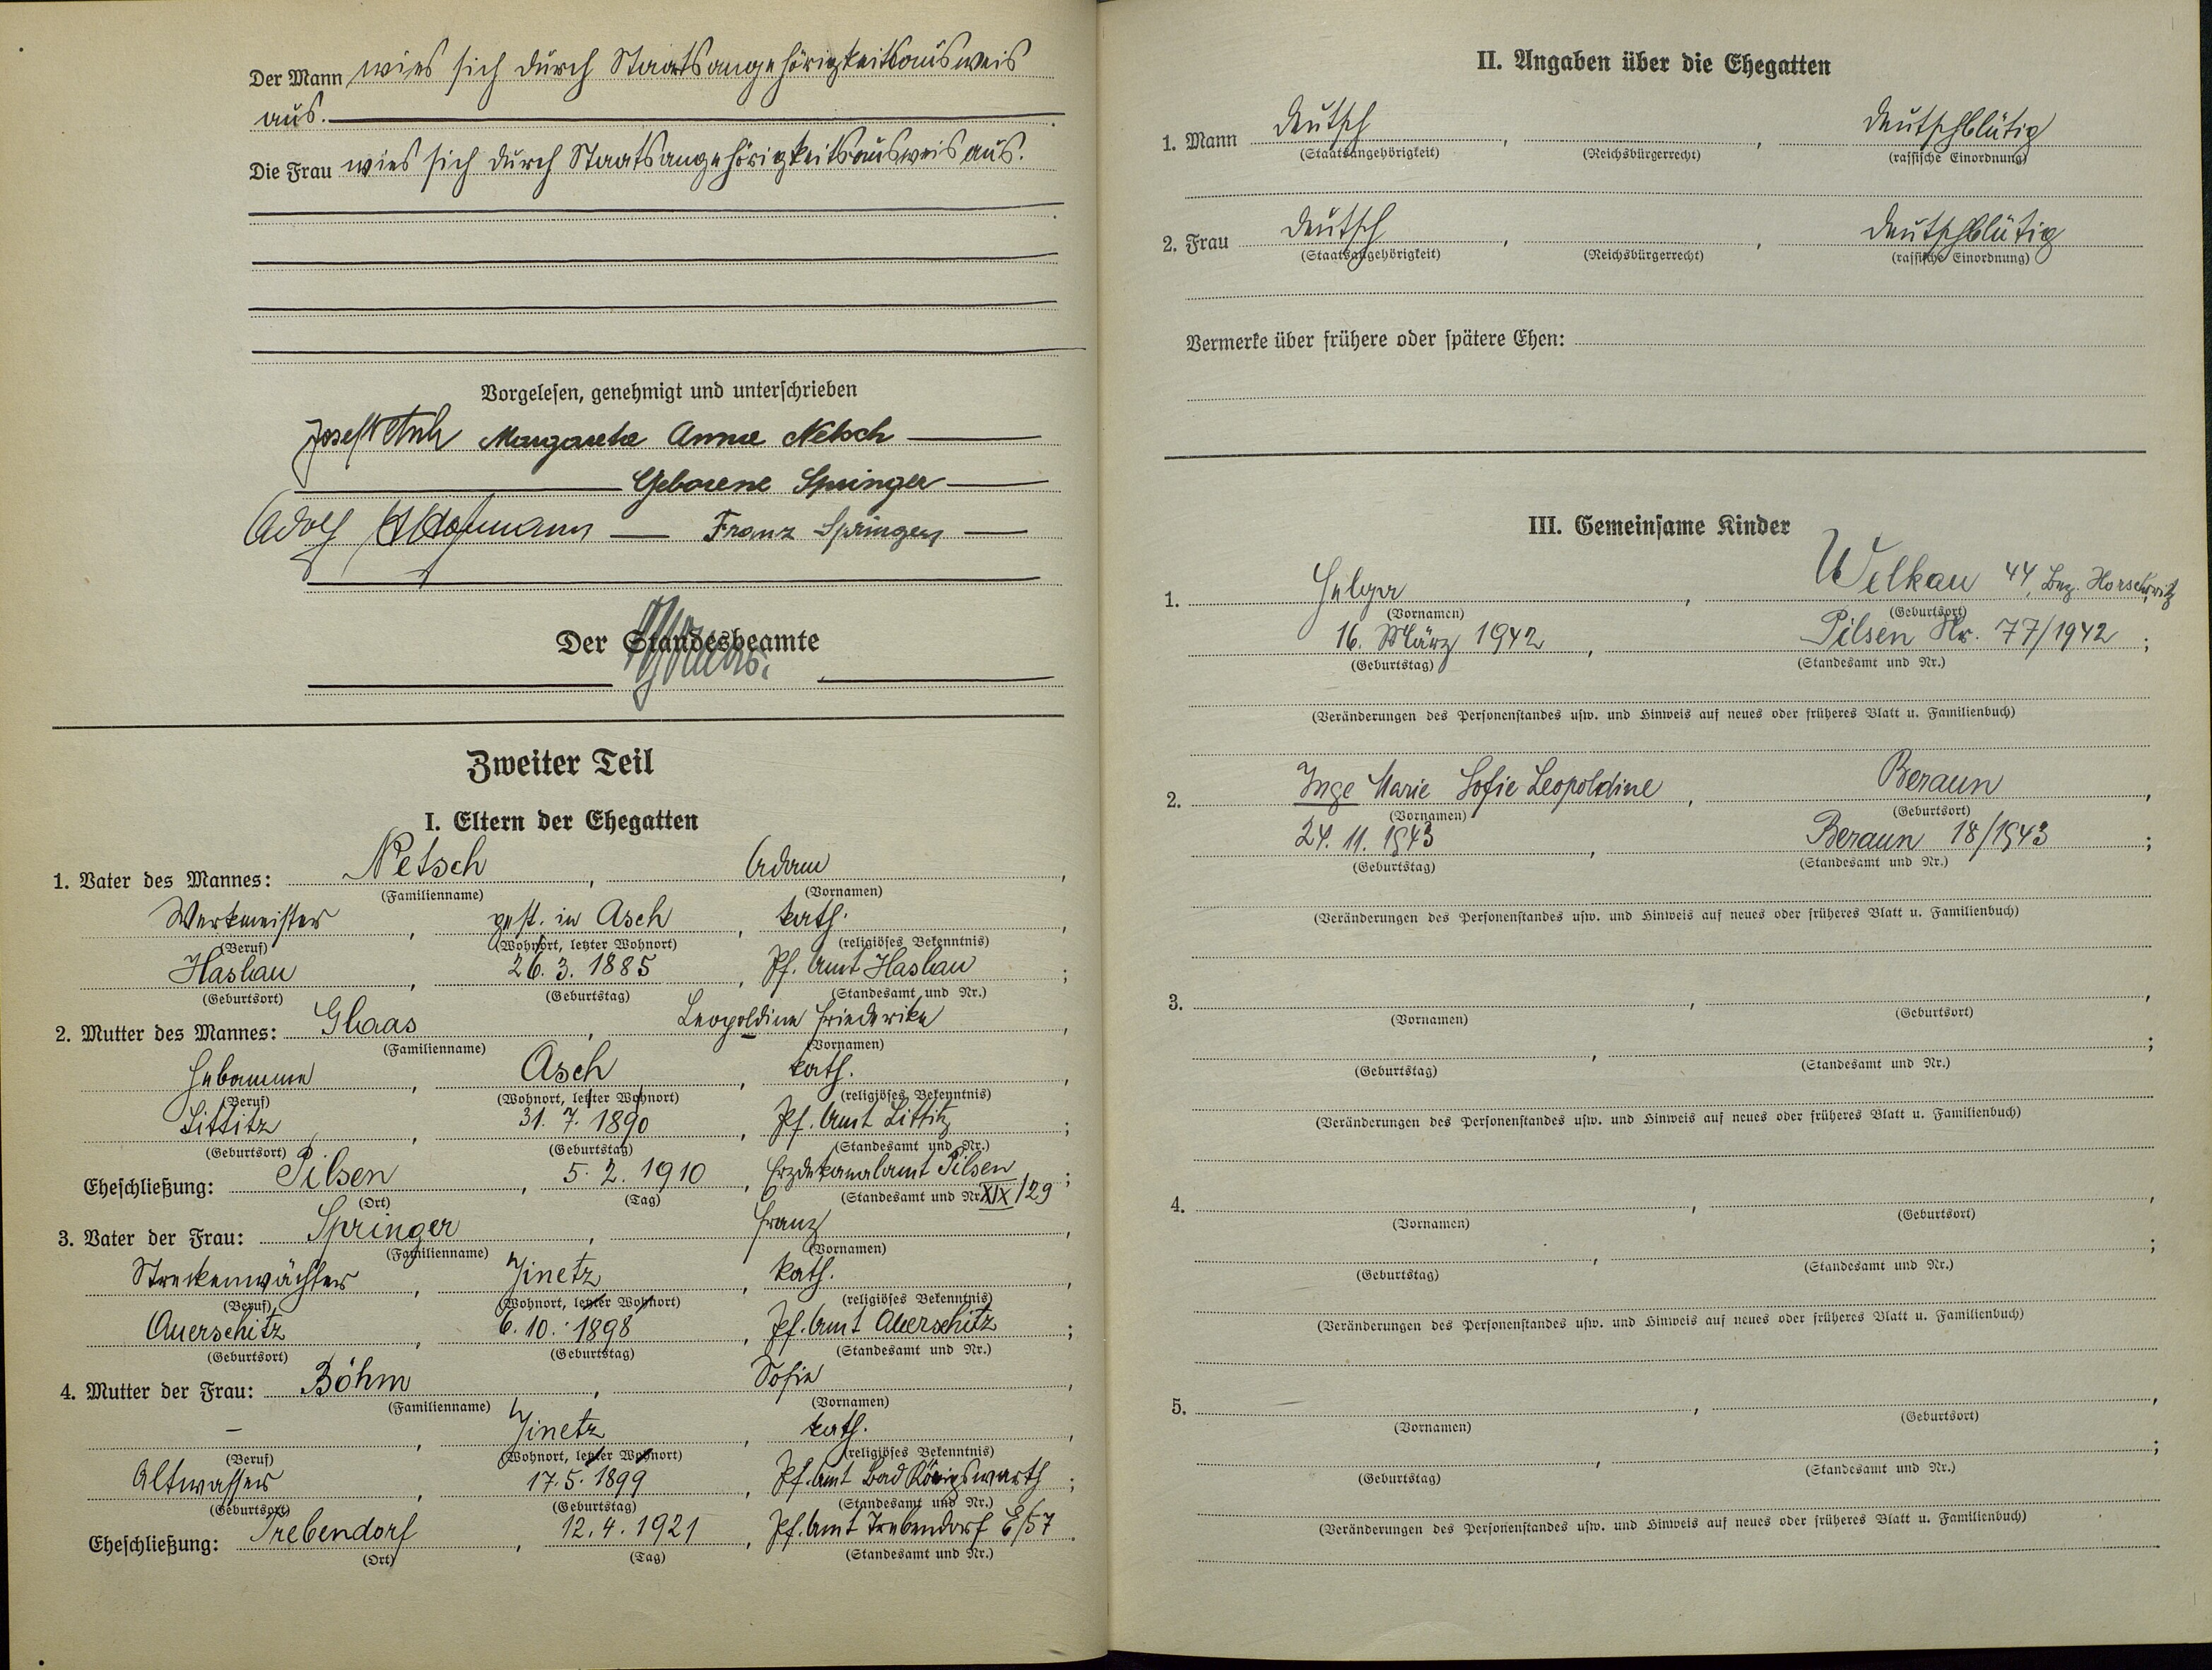 Der Mann wies sich durch Staatsangehörigkeitsausweis
aus.
Die Frau wies sich durch Staatsangehörigkeitsausweis aus.
Vorgelesen, genehmigt und unterschrieben
Josef Netsch Margarete Anna Netsch
Geborene Springer
Adolf Hofmann Franz Springer
Der Standesbeamte
Zweiter Teil
I. Eltern der Ehegatten
1. Vater des Mannes: Netsch, Adam,
(Familienname) (Vornamen)
Werkmeister, gest. in Asch, kath.,
(Beruf) (Wohnort, letzter Wohnort) (religiöses Bekenntnis)
Haslau, 26. 3. 1885, Pf. Amt Haslau;
(Geburtsort) (Geburtstag) (Standesamt und Nr.)
2. Mutter des Mannes: Glaas, Leopoldine Friederike,
(Familienname) (Vornamen)
Hebamme, Asch, kath.,
(Beruf) (Wohnort, letzter Wohnort) (religiöses Bekenntnis)
Littitz, 31. 7. 1890, Pf. Amt Littitz;
(Geburtsort) (Geburtstag) (Standesamt und Nr.)
Eheschließung: Pilsen, 5. 2. 1910, Erzdekanalamt Pilsen;
(Ort) (Tag) (Standesamt und Nr.) XIX/29
3. Vater der Frau: Springer, Franz,
(Familienname) (Vornamen)
Streckenwächter, Jinetz, kath.,
(Beruf) (Wohnort, letzter Wohnort) (religiöses Bekenntnis)
Auerschitz, 6. 10. 1898, Pf. Amt Auerschitz;
(Geburtsort) (Geburtstag) (Standesamt und Nr.)
4. Mutter der Frau: Böhm, Sofie,
(Familienname) (Vornamen)
–, Jinetz, kath.,
(Beruf) (Wohnort, letzter Wohnort) (religiöses Bekenntnis)
Altwasser, 17. 5. 1899, Pf. Amt Bad Königswarth;
(Geburtsort) (Geburtstag) (Standesamt und Nr.)
Eheschließung: Trebendorf, 12. 4. 1921, Pf. Amt Trebendorf E/57.
(Ort) (Tag) (Standesamt und Nr.)
II. Angaben über die Ehegatten
1. Mann deutsch, , deutschblütig
(Staatsangehörigkeit) (Reichsbürgerrecht) (rassische Einordnung)
2. Frau deutsch, , deutschblütig
(Staatsangehörigkeit) (Reichsbürgerrecht) (rassische Einordnung)
Vermerke über frühere oder spätere Ehen:
III. Gemeinsame Kinder
1. Helga, Welkau 44, Bez. Horschowitz
(Vornamen) (Geburtsort)
16. März 1942, Pilsen Nr. 77/1942;
(Geburtstag) (Standesamt und Nr.)
(Veränderungen des Personenstandes usw. und Hinweis auf neues oder früheres Blatt u. Familienbuch)
2. Inge Marie Sofie Leopoldine, Beraun,
(Vornamen) (Geburtsort)
24. 11. 1943, Beraun 18/1943;
(Geburtstag) (Standesamt und Nr.)
(Veränderungen des Personenstandes usw. und Hinweis auf neues oder früheres Blatt u. Familienbuch)
3. , ,
(Vornamen) (Geburtsort)
, ;
(Geburtstag) (Standesamt und Nr.)
(Veränderungen des Personenstandes usw. und Hinweis auf neues oder früheres Blatt u. Familienbuch)
4. , ,
(Vornamen) (Geburtsort)
, ;
(Geburtstag) (Standesamt und Nr.)
(Veränderungen des Personenstandes usw. und Hinweis auf neues oder früheres Blatt u. Familienbuch)
5. , ,
(Vornamen) (Geburtsort)
, ;
(Geburtstag) (Standesamt und Nr.)
(Veränderungen des Personenstandes usw. und Hinweis auf neues oder früheres Blatt u. Familienbuch)